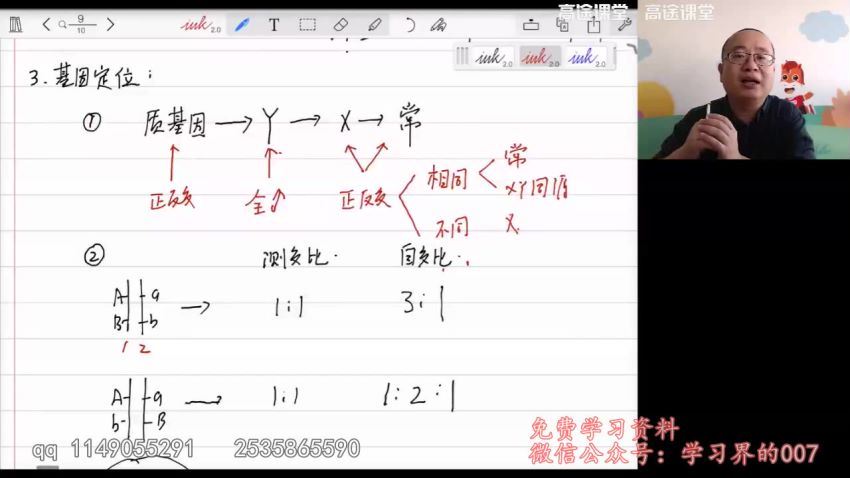 9
10
ink 2.0
T
高途课堂 高途课堂
ink 2.0 ink 2.0 ink 2.0
3. 基因定位：
① 质基因 → Y → X → 常
正反交 全♂ 正反交 相同 常
XY同源
不同 X
② 测交比 自交比
A a → 1:1 3:1
B b
1 2
A a → 1:1 1:2:1
b B
免费学习资料
qq 1149055291 2535865590 微信公众号：学习界的007